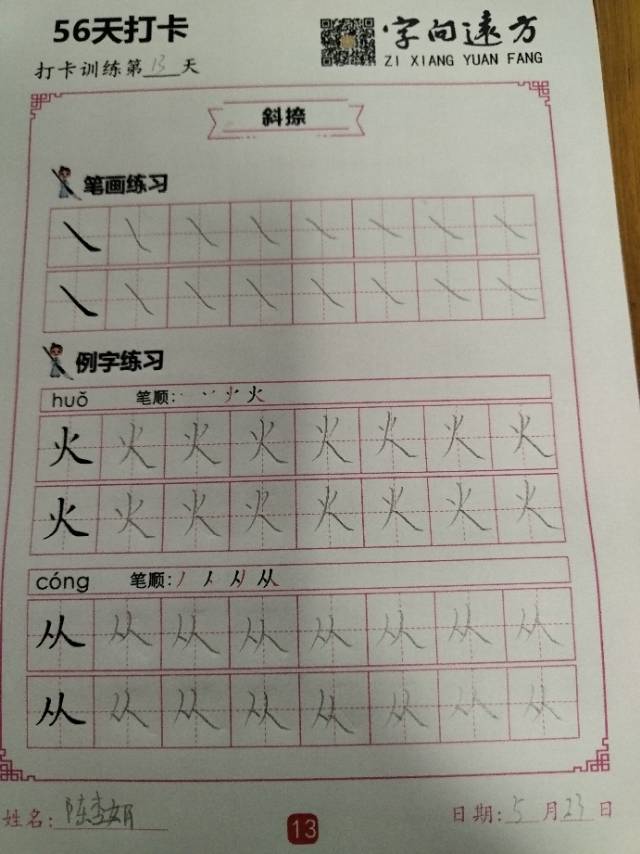 56天打卡
字向远方
ZI XIANG YUAN FANG
打卡训练第13天
斜捺
笔画练习
例字练习
huǒ 笔顺:
火 火 火 火 火 火 火 火
火 火 火 火 火 火 火 火
cóng 笔顺:
从 从 从 从 从 从 从 从
从 从 从 从 从 从 从 从
姓名:陈李娟
13
日期:5月23日